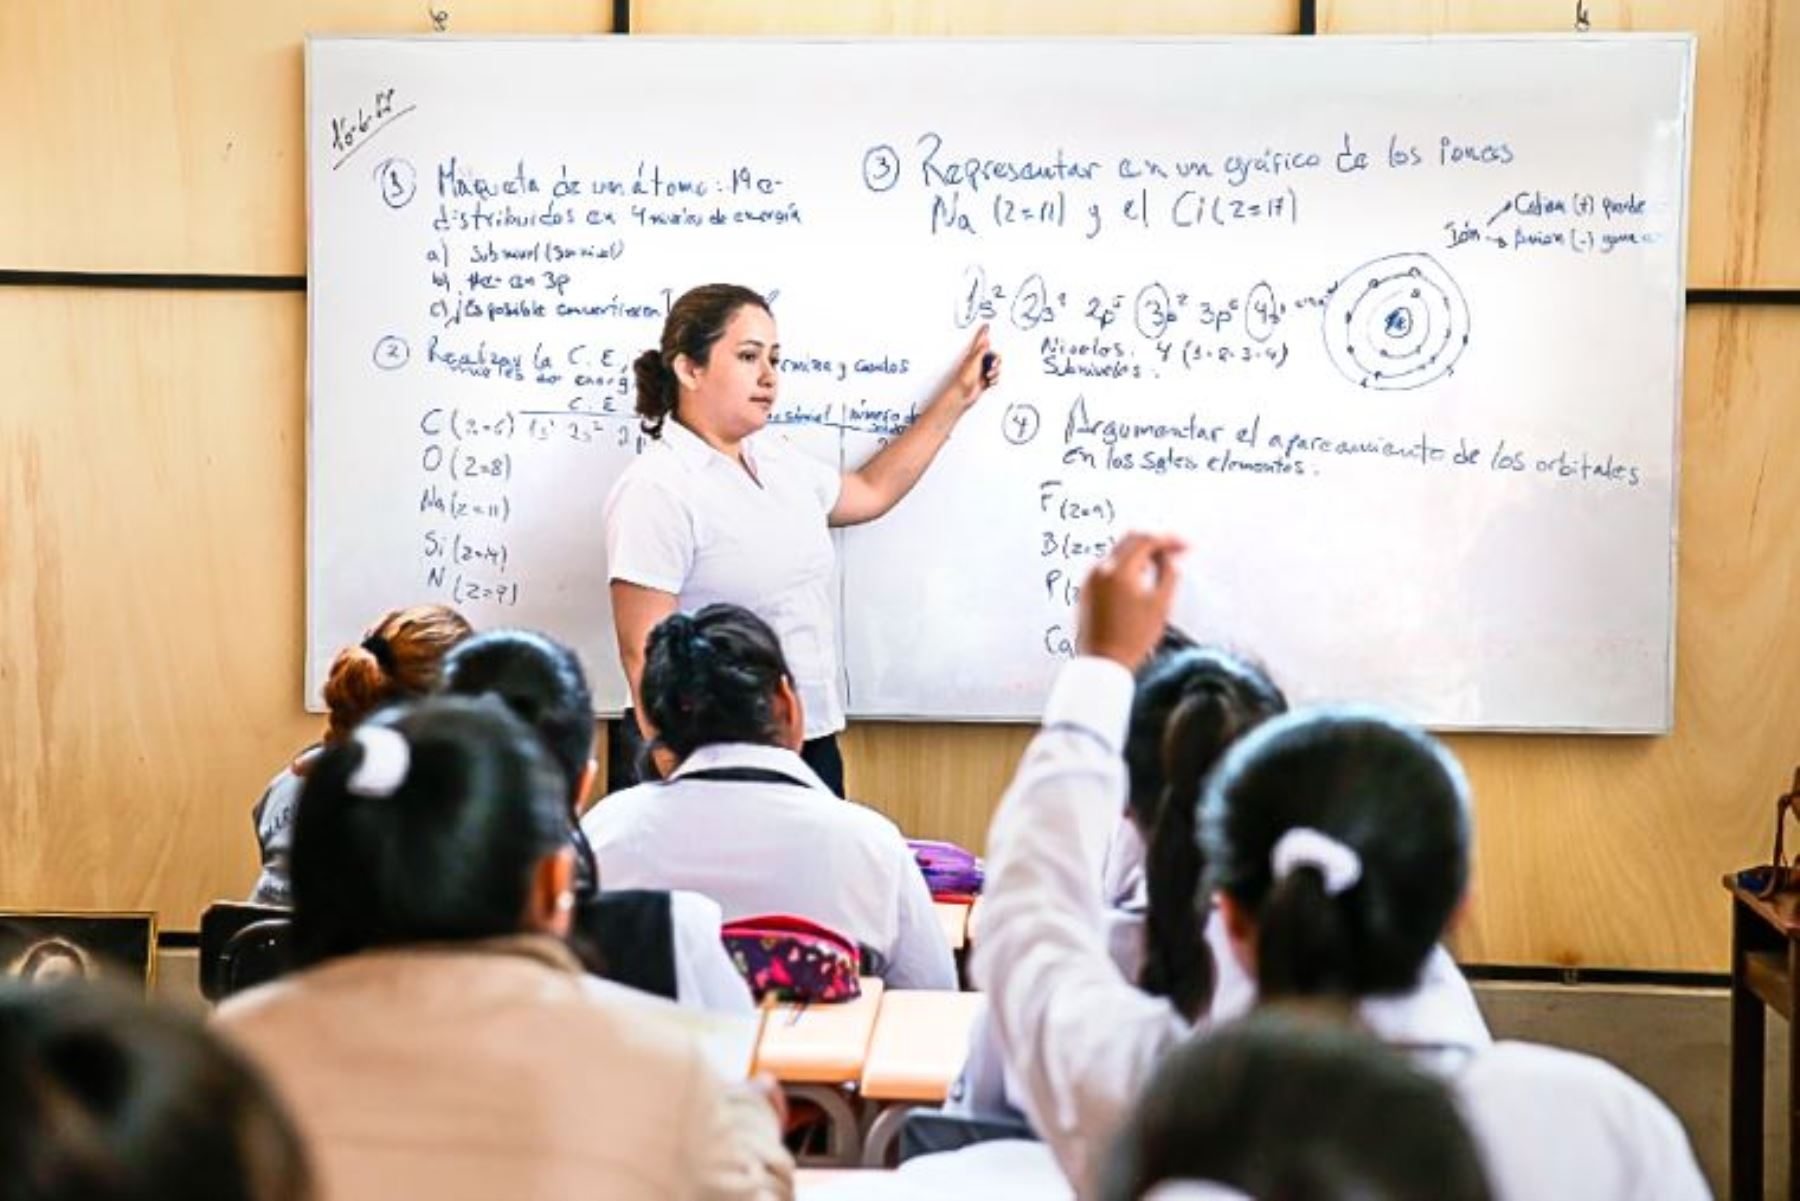 16-6-22
① Maqueta de un átomo: 19 e-
distribuidos en 4 niveles de energía
a) Subnivel
b) #e- en 3p
c) ¿Es posible convertirse en
② Realizar la C.E,
niveles de energ
rmina y cuantos
C.E
número de
C (Z=6) 1s² 2s² 2p
O (Z=8)
Na (Z=11)
Si (Z=14)
N (Z=7)
③ Representar en un gráfico de los iones
Na (Z=11) y el Cl (Z=17)
Ión
Cation (+) pierde
Anion (-) gana e-
1s² 2s² 2p⁶ 3s² 3p⁶ 4s¹
Niveles: 4 (1-2-3-4)
Subniveles:
④ Argumentar el apareamiento de los orbitales
en los sgtes elementos:
F (Z=9)
B (Z=5)
P (Z
Ca